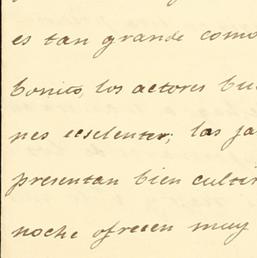 es tan grande como
bonito, los actores bu
nes ecselentes; las ja
presentan bien culti
noche ofrecen muy